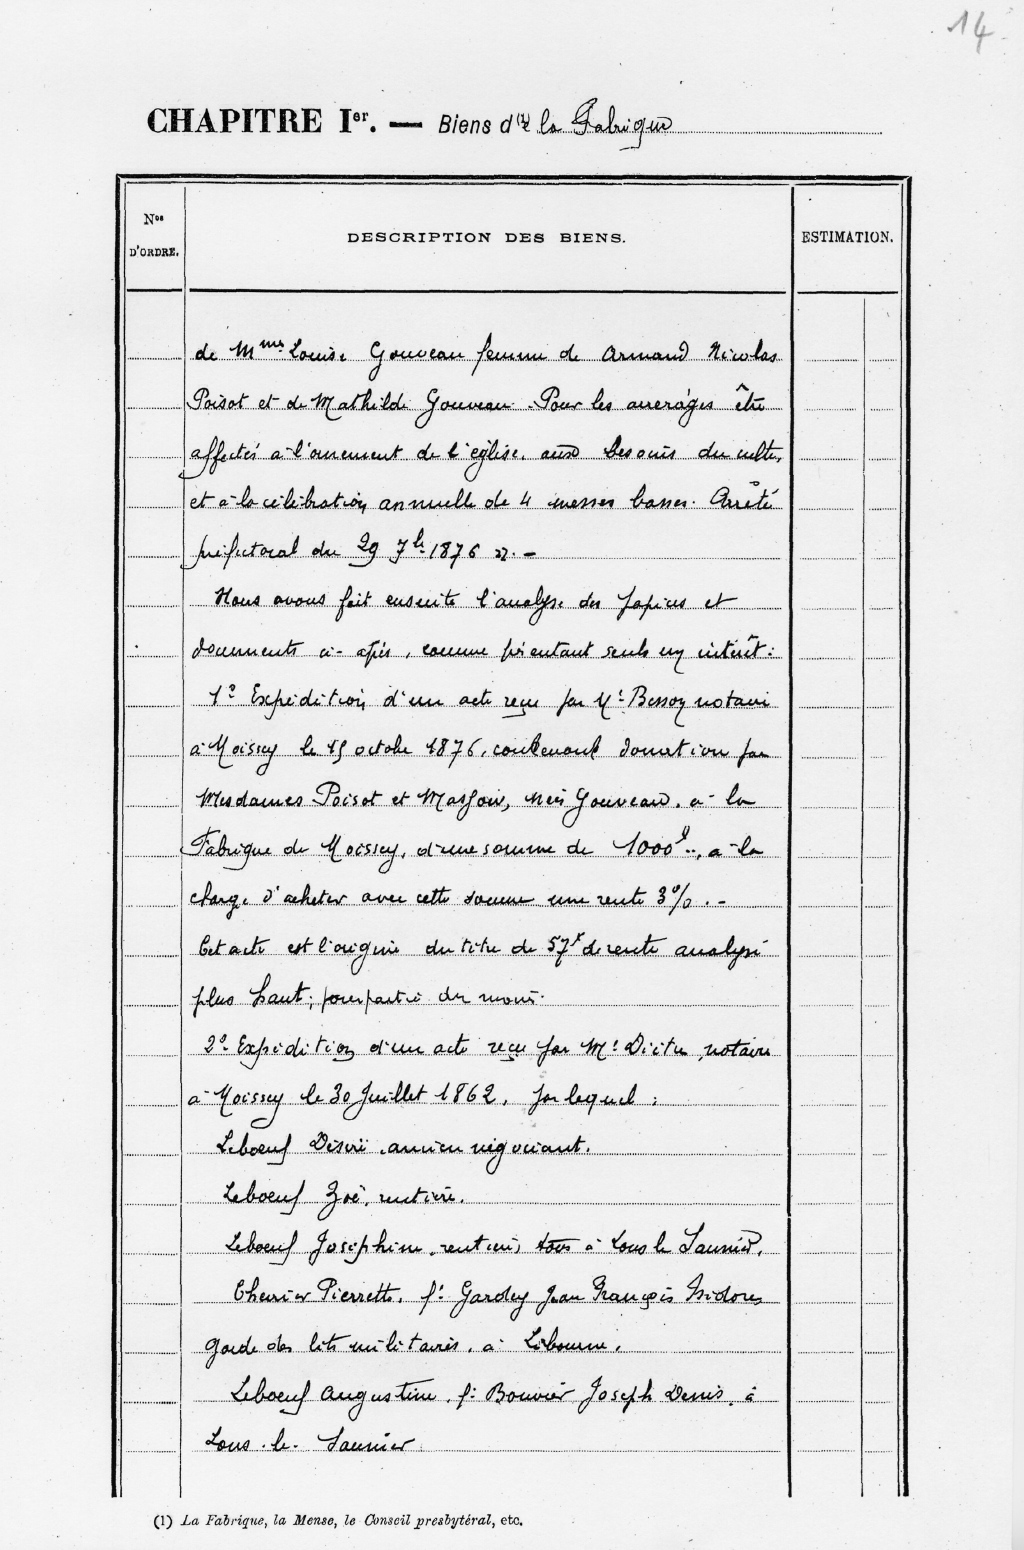 14
CHAPITRE Ier. — Biens d(1)e la Fabrique
Nos D'ORDRE.
DESCRIPTION DES BIENS.
ESTIMATION.
de Mmes Louise Gouveau femme de Armand Nicolas
Poisot et de Mathilde Gouveau. Pour les arrérages être
affectés à l'ornement de l'église, aux besoins du culte,
et à la célébration annuelle de 4 messes basses. Arrêté
préfectoral du 29 7bre 1876
Nous avons fait ensuite l'analyse des papiers et
documents ci-après, comme présentant seuls un intérêt:
1o Expédition d'un acte reçu par Me Besson notaire
à Moissey le 15 octobre 1876, contenant donation par
Mesdames Poisot et nées Gouveau, à la
Fabrique de Moissey, d'une somme de 1000f, à la
charge d'acheter avec cette somme une rente 3%. -
Cet acte est l'origine du titre de 57f de rente analysé
plus haut, pour partie du moins.
2o Expédition d'un acte reçu par Me notaire
à Moissey le 30 Juillet 1862, par lequel:
Leboeuf Désiré, ancien négociant.
Leboeuf Zoé, rentière.
Leboeuf Joséphine, rentière, tous à Lons le Saunier,
Chevrier Pierrette, fe Gardey Jean François Isidore,
garde des lits militaires, à Libourne.
Leboeuf Augustine, fe Bouvier Joseph Denis, à
Lons-le-Saunier
(1) La Fabrique, la Mense, le Conseil presbytéral, etc.